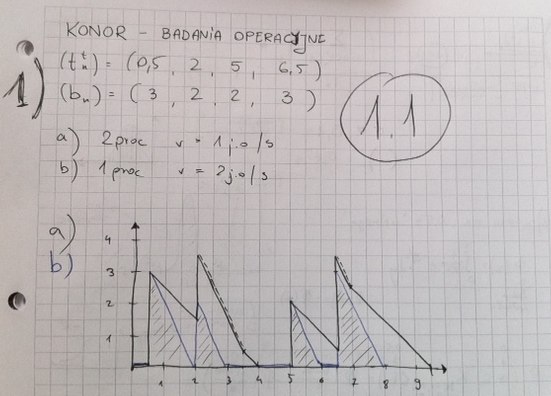 KONOR - BADANIA OPERACYJNE
1)
(t_n^t) = (0,5 , 2 , 5 , 6,5)
(b_n) = (3 , 2 , 2 , 3)
1.1
a) 2 proc v = 1 j.o/s
b) 1 proc v = 2 j.o/s
a)
b)
4
3
2
1
1 2 3 4 5 6 7 8 9